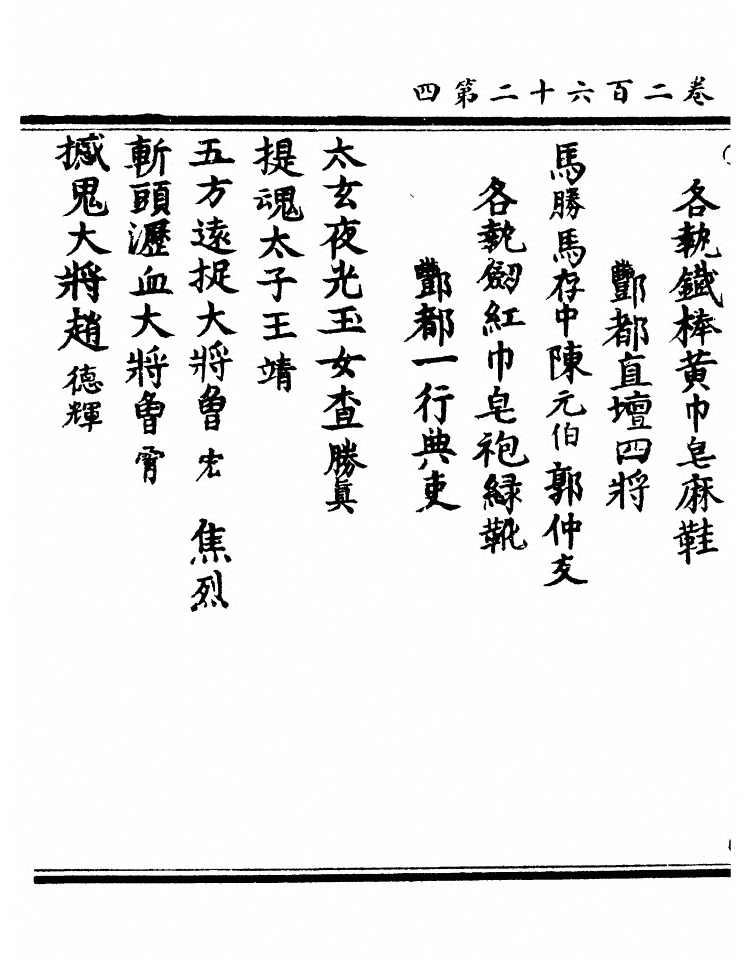 卷二百六十二第四
各執鐵棒黃巾皂麻鞋
酆都直壇四將
馬勝馬存中陳元伯郭仲友
各執劒紅巾皂袍綠靴
酆都一行典吏
太玄夜光玉女查勝眞
提魂太子王靖
五方遠捉大將魯宏 焦烈
斬頭瀝血大將魯霄
撼鬼大將趙德輝